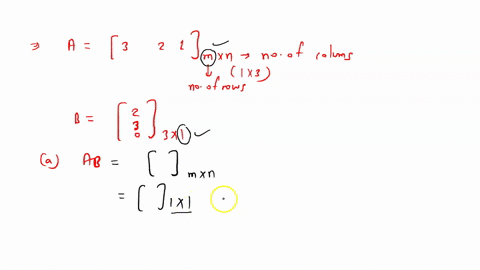 ⇒ A = [ 3 2 1 ] m×n → no. of colums
(1×3)
no. of rows
B = [ 2 3 0 ] 3×1
(a) AB = [ ] m×n
= [ ] 1×1